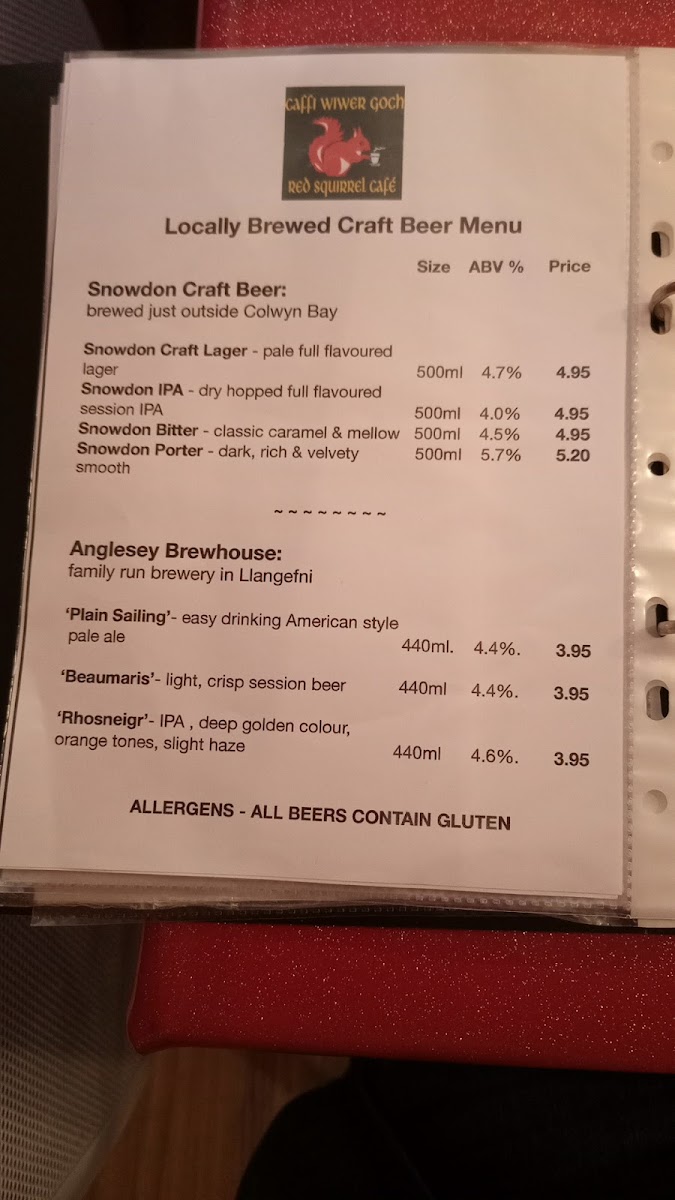 CAFFI WIWER GOCH
RED SQUIRREL CAFÉ
Locally Brewed Craft Beer Menu
Size ABV % Price
Snowdon Craft Beer:
brewed just outside Colwyn Bay
Snowdon Craft Lager - pale full flavoured
lager 500ml 4.7% 4.95
Snowdon IPA - dry hopped full flavoured
session IPA 500ml 4.0% 4.95
Snowdon Bitter - classic caramel & mellow 500ml 4.5% 4.95
Snowdon Porter - dark, rich & velvety 500ml 5.7% 5.20
smooth
~ ~ ~ ~ ~ ~ ~ ~
Anglesey Brewhouse:
family run brewery in Llangefni
‘Plain Sailing’- easy drinking American style
pale ale 440ml. 4.4%. 3.95
‘Beaumaris’- light, crisp session beer 440ml 4.4%. 3.95
‘Rhosneigr’- IPA , deep golden colour,
orange tones, slight haze 440ml 4.6%. 3.95
ALLERGENS - ALL BEERS CONTAIN GLUTEN